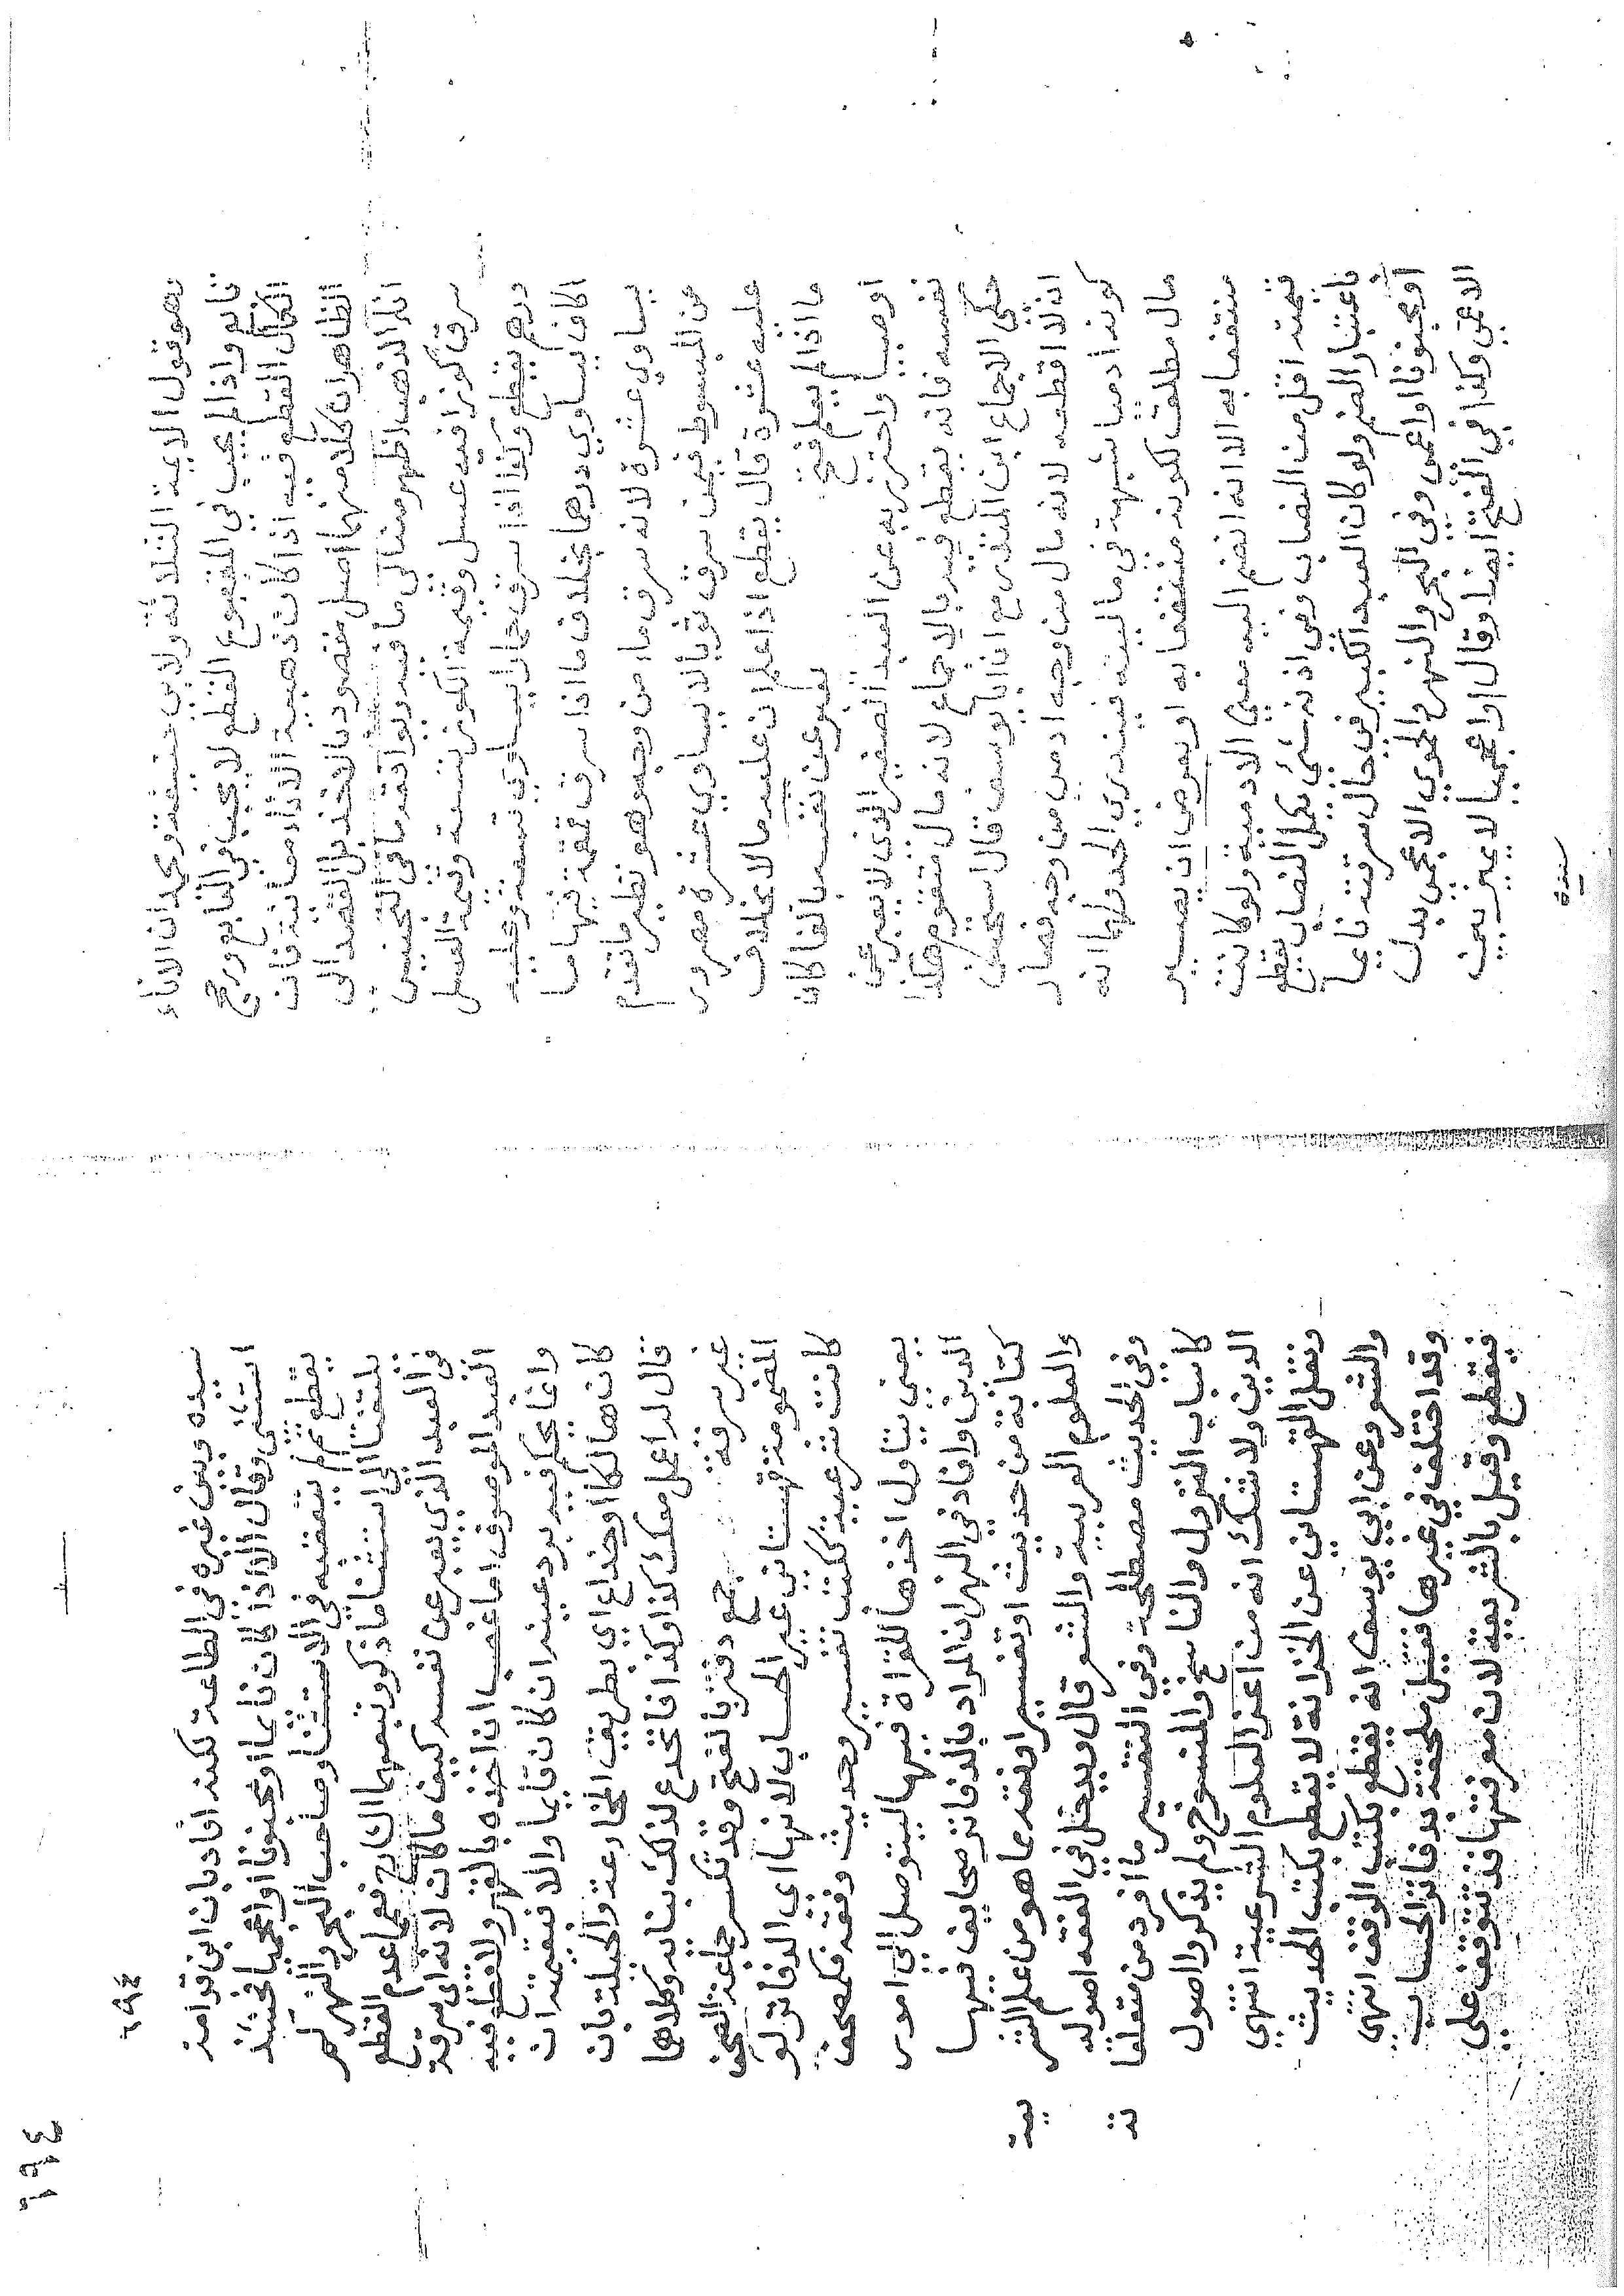 هو قول الايمة الثلاثة ولابي حنيفة ومحمد ان الاناء
تابع واذا لم يجب في المتبوع القطع لا يجب في التابع ورجح
الكمال القطع فيه اذا كانت ذهبية الاناء معاينة فان
الظاهر ان كلا منهما اصل مقصود بالاخذ بل القصد الى
اناء الذهب اظهر منه الى ما فيه ويوافقه ما في التجنيس
سرق كوزا فيه عسل وقيمة الكوز تسعة وقيمة العسل
درهم يقطع وكذا اذا سرق حمارا يساوي تسعة وعليه
اكاف يساوي درهما بخلاف ما اذا سرق قمقمة فيها ما
يساوي عشرة لانه سرق ماء من وجه وهو نظير ما تقدم
عن المبسوط فيمن سرق ثوبا لا يساوي عشرة مصرور
عليه عشرة قال يقطع اذا علم ان عليه مالا بخلاف
ما اذا لم يعلم فتح يعبر عن نفسه بالغا كان
او صبيا واحترز به عن العبد الصغير الذي لا يعبر عن
نفسه فانه يقطع فيه بالاجماع لانه مال متقوم هكذا
حكى الاجماع ابن المنذر مع ان ابا يوسف قال استحسن
ان لا اقطعه لانه مال من وجه ادمي من وجه فصار
كونه ادميا شبهة في ماليته فيندري الحد ولهما انه
مال مطلق لكونه منتفعا به او بعرض ان يصير
منتفعا به الا انه انضم اليه معنى الادمية ولو كانت
قيمته اقل من النصاب وفي اذنه شيء يكمل النصاب يقطع
باعتبار الضم ولو كان العبد الكبير في حال سرقته نايما
او مجنونا او اعمى وفي البحر والنهر والحموي الاعجمي بدل
الاعمى وكذا في الفتح ايضا وقال او اعجميا لا يميز بين
سيده
٢٩٤
١٩٤
سيده وبين غيره في الطاعة لكنه افاد بان ابن قدامة
استثنى وقال الا اذا كان نايما او مجنونا او اعجميا فحينئذ
يقطع ثم لم يتعقبه في الاستثنا وصاحب البحر والنهر لم
يلتفتا الى استثنا ما ذكر وتبعهما الشارح فعلم عدم القطع
في العبد الذي يعبر عن نفسه كيف ما كان لانه اي سرقة
العبد الموصوف اما غصب ان اخذه بالقهر ولا قطع فيه
وانما يحكم فيه برد عينه ان كان قايما والا فقيمته ان
كان هالكا او خداع اي بطريق المخادعة والحيلة بان
قال له اعمل معك كذا وكذا فانخدع لذلك بنايه وكلاهما
غير سرقة جمع دفتر بالفتح وقد تكسر جماعة الصحف
المضمومة قهستاني غير الحساب لانها اي الدفاتر لو
كانت شرعية ككتب تفسير وحديث وفقه فكمصحف
يعني يتاول اخذها للقراة فيها ليتوصل الى امور
الدين وافاد في النهر ان المراد بالدفاتر صحايف فيها
كتابة من حديث او تفسير او فقه مما هو من علم الشر
يعة
والعلوم العربية والشعر قال ويدخل في الفقه اصوله
وفي الحديث مصطلحه وفي التفسير ما افرد من متعلقا
ته
كاسباب النزول والناسخ والمنسوخ ولم يذكروا اصول
الدين ولا شك انه من اعز العلوم الشرعية انتهى
ونقل القهستاني عن الخزانة لا يقطع بكتب الحديث
والشعر وعن ابي يوسف انه يقطع بكتب الوقف انتهى
وقد اختلف في غيرها فقيل ملحقة بدفاتر الحساب
فيقطع وقيل بالشريعة لان معرفتها قد تتوقف على